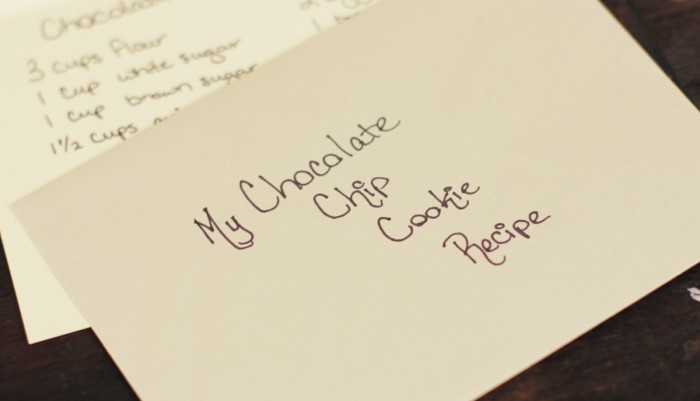 Chocolate
3 cups flour
1 cup white sugar
1 cup brown sugar
1 1/2 cups
My Chocolate
Chip
Cookie
Recipe